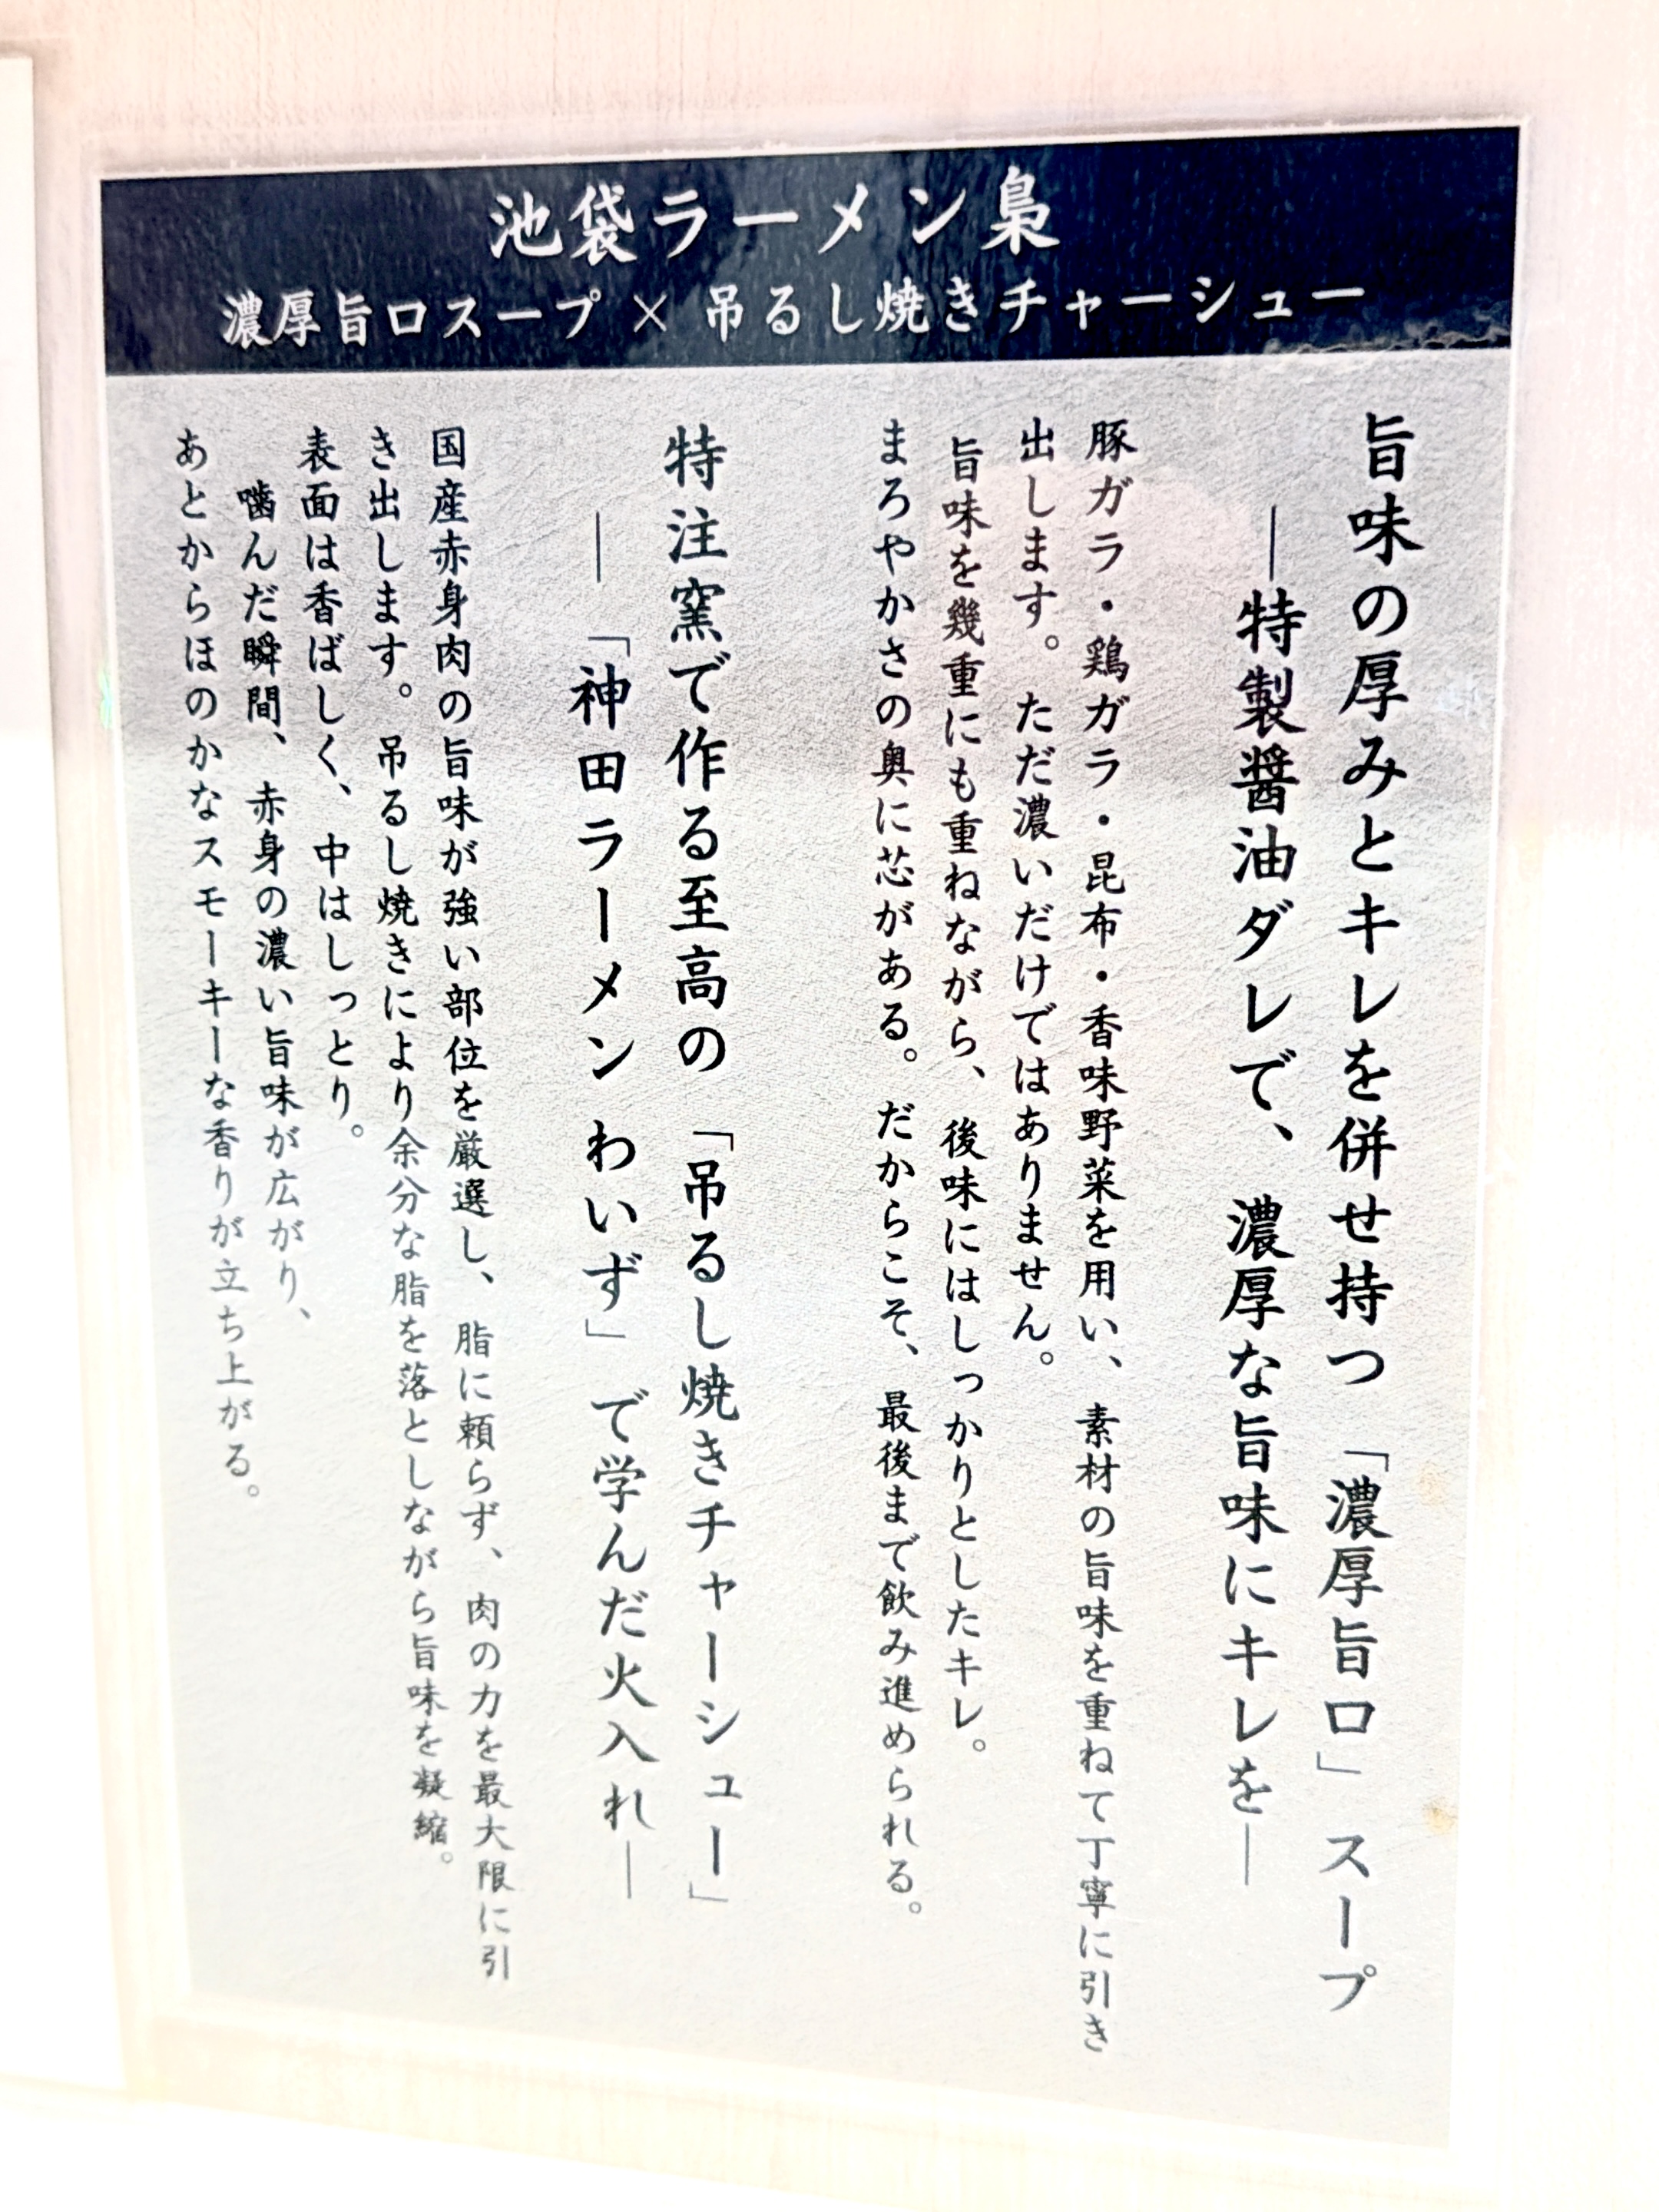 池袋ラーメン梟
濃厚旨口スープ × 吊るし焼きチャーシュー
旨味の厚みとキレを併せ持つ「濃厚旨口」スープ
―特製醤油ダレで、濃厚な旨味にキレを―
豚ガラ・鶏ガラ・昆布・香味野菜を用い、素材の旨味を重ねて丁寧に引き
出します。ただ濃いだけではありません。
旨味を幾重にも重ねながら、後味にはしっかりとしたキレ。
まろやかさの奥に芯がある。だからこそ、最後まで飲み進められる。
特注窯で作る至高の「吊るし焼きチャーシュー」
―「神田ラーメン わいず」で学んだ火入れ―
国産赤身肉の旨味が強い部位を厳選し、脂に頼らず、肉の力を最大限に引
き出します。吊るし焼きにより余分な脂を落としながら旨味を凝縮。
表面は香ばしく、中はしっとり。
噛んだ瞬間、赤身の濃い旨味が広がり、
あとからほのかなスモーキーな香りが立ち上がる。